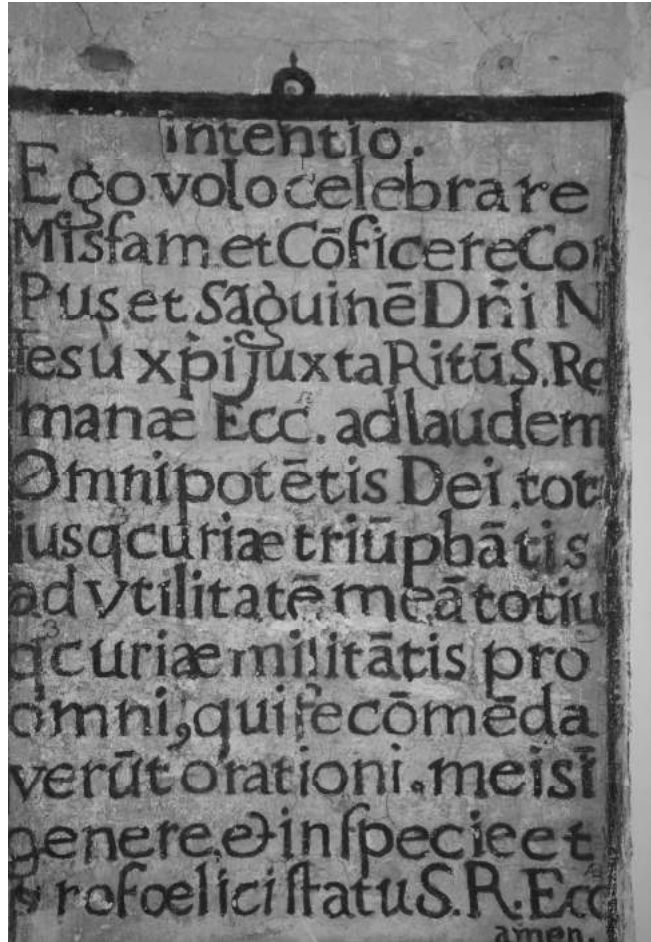 intentio.
Ego volo celebrare
Missam et Cōficere Cor
Pus et Sāguinē Dn̄i N
Iesu xp̄i juxta Ritū S. Ro
manæ Ecc. ad laudem
Omnipotētis Dei. tot
iusq curiæ triūphātis
ad vtilitatē meā totiu
q curiæ militātis pro
omni, qui se cōmēda
verūt orationi. meis ī
genere. & in ſpecie et
pro fœlici ſtatu S. R. Ecc
amen.